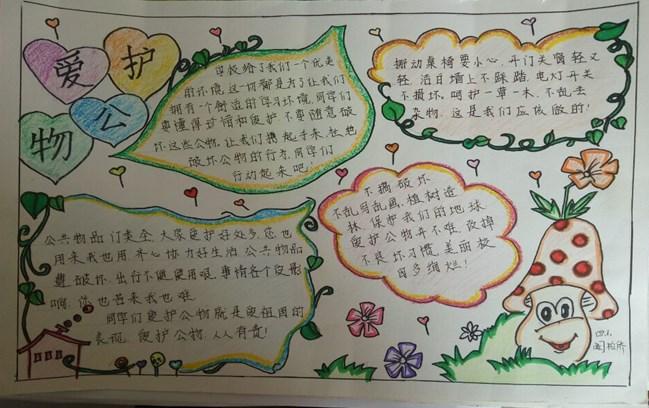 爱护
公物
学校给了我们一个优美
的环境,这一切都是为了让我们
拥有一个舒适的学习环境,同学们
要懂得珍惜和爱护,不要随意破
坏这些公物,让我们携起手来,杜绝
破坏公物的行为,同学们
行动起来吧!
搬动桌椅要小心,开门关窗轻又
轻,洁白墙上不踩踏,电灯开关
不损坏,呵护一草一木,不乱丢
杂物,这是我们应该做的!
公共物品门类全,大家爱护好处多,您也
用来我也用,齐心协力好生活,公共物品
要破坏,出行不便受用艰,事情各个没形
啊,你也苦来我也难。
同学们爱护公物就是爱祖国的
表现,爱护公物,人人有责!
不搞破坏
不乱写乱画,植树造
林,保护我们的地球
爱护公物并不难,改掉
不良坏习惯,美丽校
园多绚烂!
四.1.